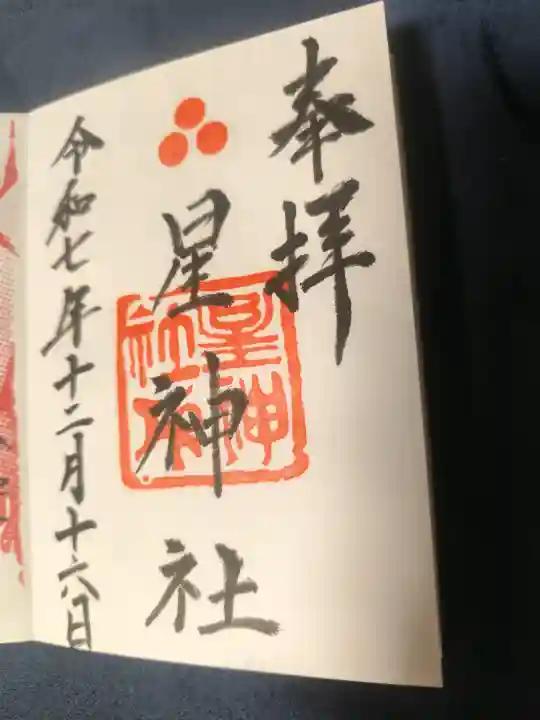 奉拝
星神社
星神社
令和七年十二月十六日